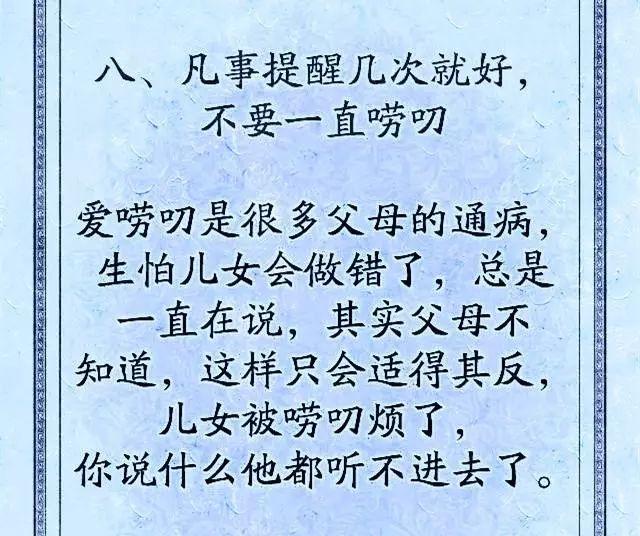 八、凡事提醒几次就好，
不要一直唠叨
爱唠叨是很多父母的通病，
生怕儿女会做错了，总是
一直在说，其实父母不
知道，这样只会适得其反，
儿女被唠叨烦了，
你说什么他都听不进去了。